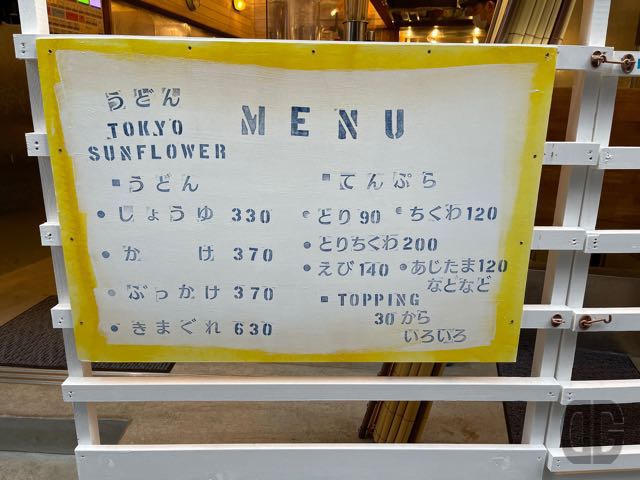 うどん
TOKYO
SUNFLOWER
MENU
▪うどん
•しょうゆ 330
•かけ 370
•ぶっかけ 370
•きまぐれ 630
▪てんぷら
•とり90 •ちくわ120
•とりちくわ200
•えび140 •あじたま120
などなど
▪TOPPING
30から
いろいろ